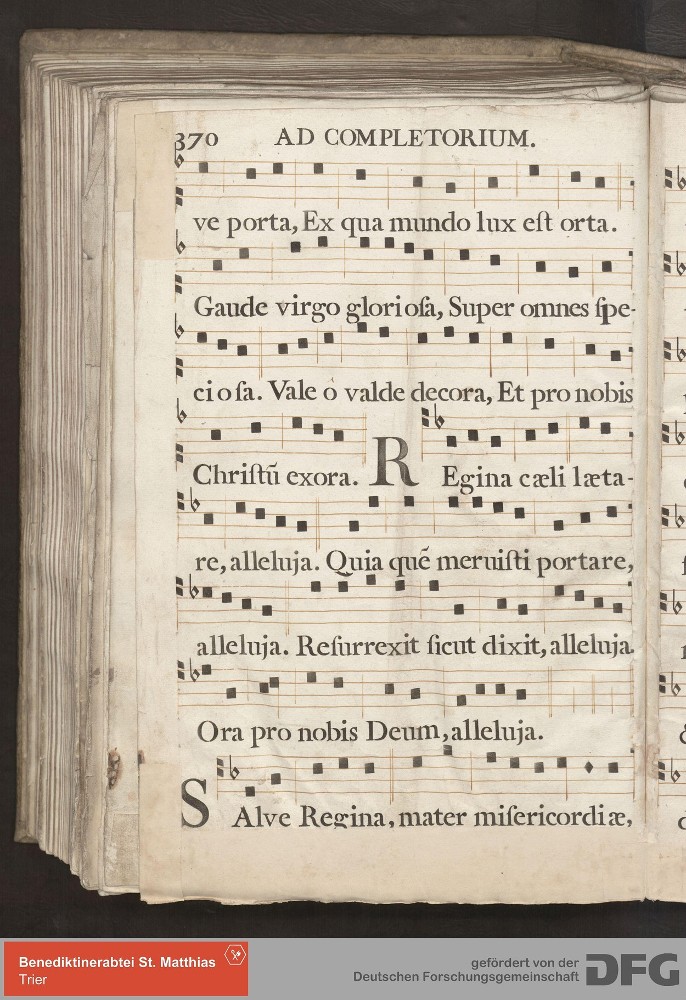 370 AD COMPLETORIUM.
ve porta, Ex qua mundo lux eſt orta.
Gaude virgo glorioſa, Super omnes ſpe-
cioſa. Vale ô valde decora, Et pro nobis
Chriſtũ exora. REgina cæli læta-
re, alleluja. Quia quẽ meruiſti portare,
alleluja. Reſurrexit ſicut dixit, alleluja.
Ora pro nobis Deum, alleluja.
SAlve Regina, mater miſericordiæ,
Benediktinerabtei St. Matthias
Trier
gefördert von der
Deutschen Forschungsgemeinschaft
DFG